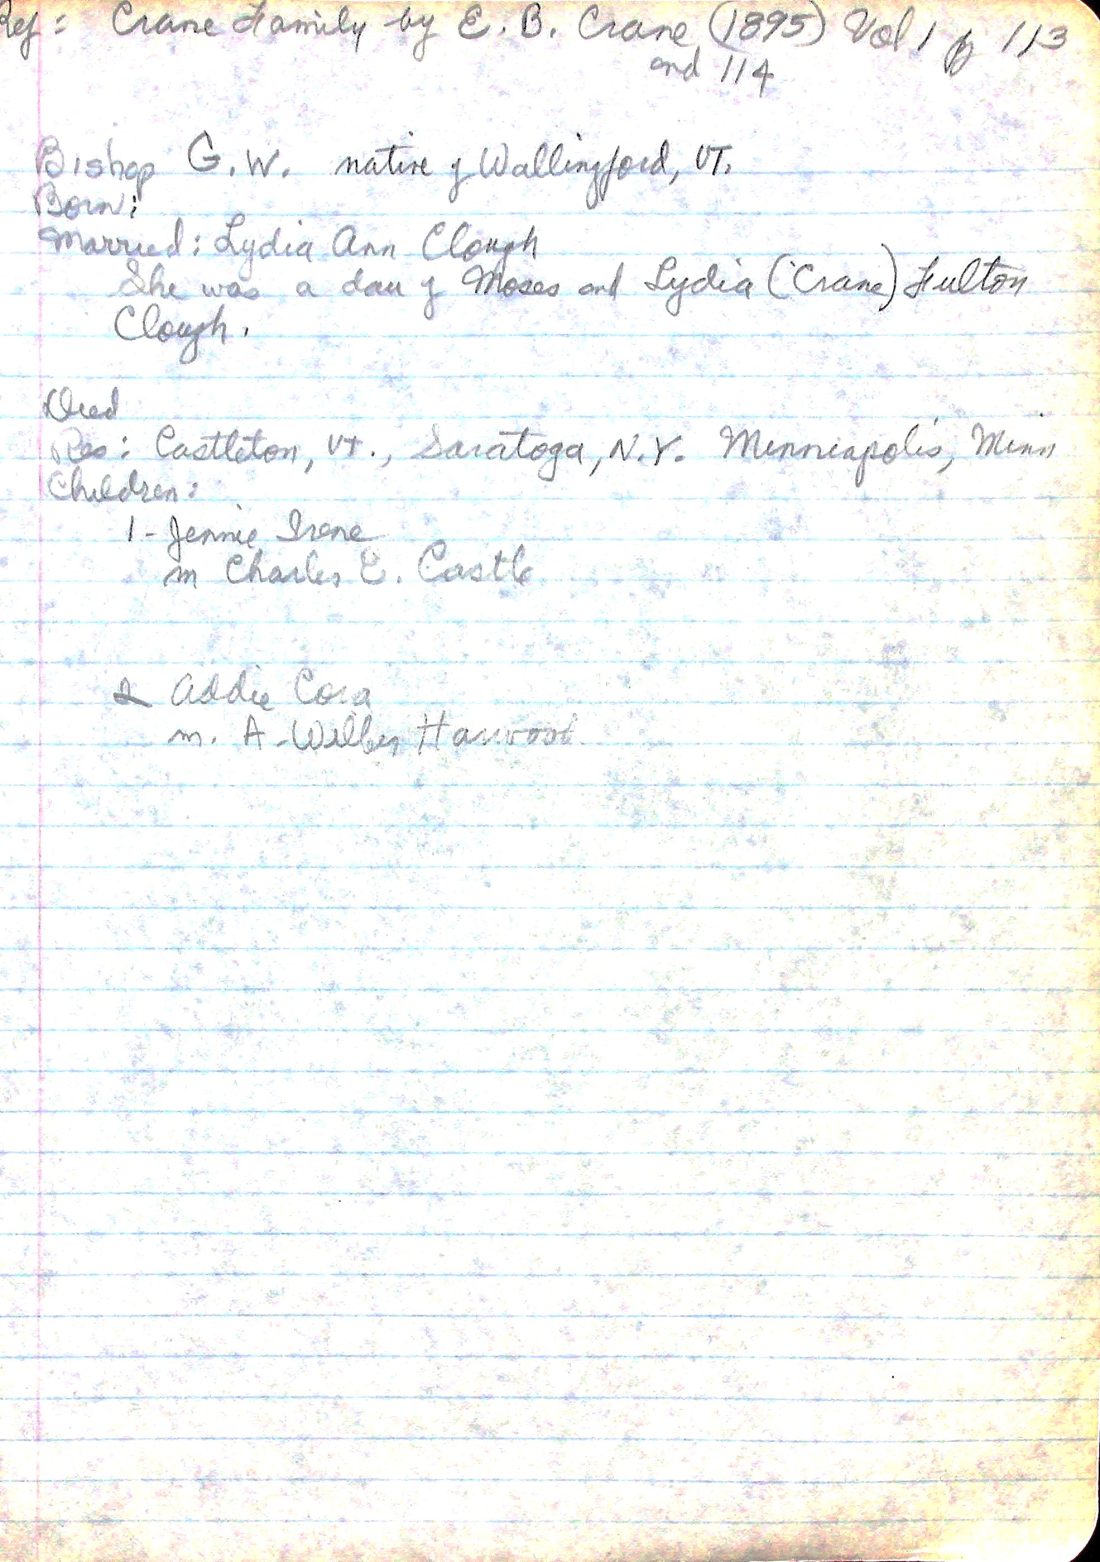 Ref: Crane Family by E. B. Crane (1895) Vol 1 p 113
and 114
Bishop G. W. native of Wallingford, VT.
Born:
Married: Lydia Ann Clough
She was a dau of Moses and Lydia (Crane) Fulton
Clough.
Died
Res: Castleton, VT., Saratoga, N.Y. Minneapolis, Minn
Children:
1- Jennie Irene
m Charles E. Castle
2 Addie Cora
m. A. Harwood